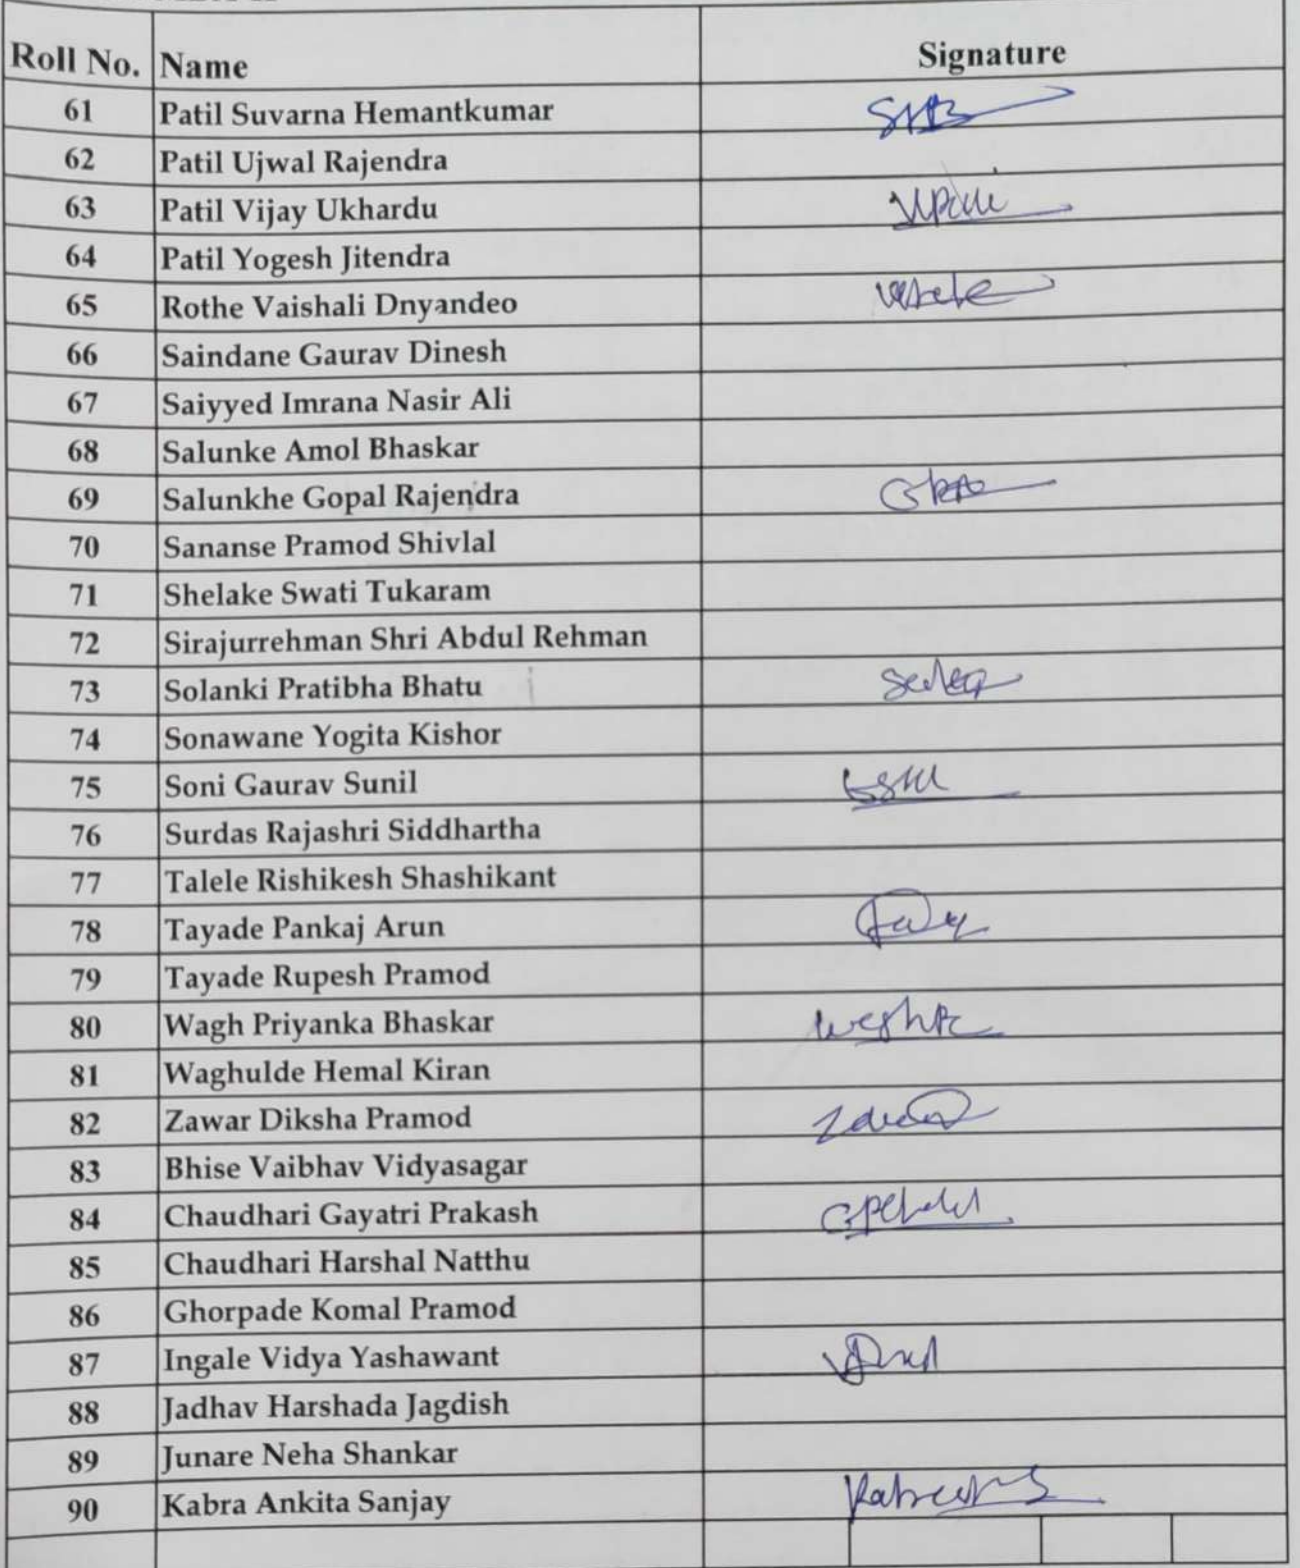 Roll No. Name Signature
61 Patil Suvarna Hemantkumar
62 Patil Ujwal Rajendra
63 Patil Vijay Ukhardu
64 Patil Yogesh Jitendra
65 Rothe Vaishali Dnyandeo
66 Saindane Gaurav Dinesh
67 Saiyyed Imrana Nasir Ali
68 Salunke Amol Bhaskar
69 Salunkhe Gopal Rajendra
70 Sananse Pramod Shivlal
71 Shelake Swati Tukaram
72 Sirajurrehman Shri Abdul Rehman
73 Solanki Pratibha Bhatu
74 Sonawane Yogita Kishor
75 Soni Gaurav Sunil
76 Surdas Rajashri Siddhartha
77 Talele Rishikesh Shashikant
78 Tayade Pankaj Arun
79 Tayade Rupesh Pramod
80 Wagh Priyanka Bhaskar
81 Waghulde Hemal Kiran
82 Zawar Diksha Pramod
83 Bhise Vaibhav Vidyasagar
84 Chaudhari Gayatri Prakash
85 Chaudhari Harshal Natthu
86 Ghorpade Komal Pramod
87 Ingale Vidya Yashawant
88 Jadhav Harshada Jagdish
89 Junare Neha Shankar
90 Kabra Ankita Sanjay